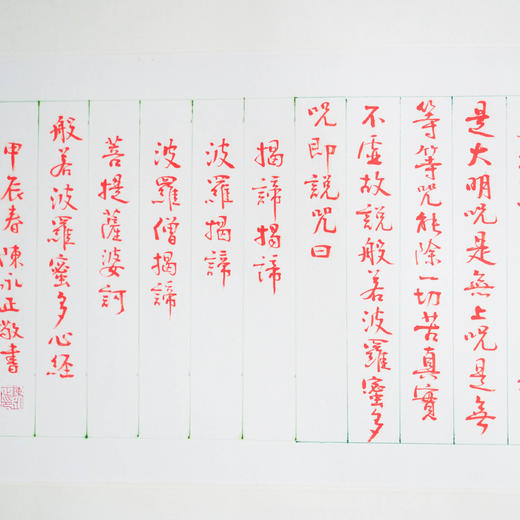 是大明咒是無上咒是無
等等咒能除一切苦真實
不虛故說般若波羅蜜多
咒即說咒曰
揭諦揭諦
波羅揭諦
波羅僧揭諦
菩提薩婆訶
般若波羅蜜多心經
甲辰春陳永正敬書